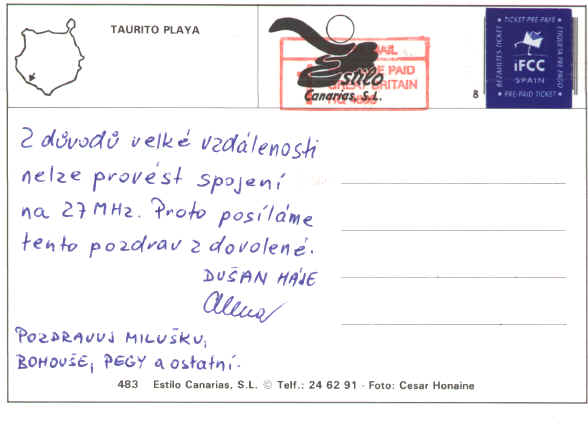 TAURITO PLAYA
Estilo
Canarias, S.L.
PAID
GREAT BRITAIN
8
• TICKET PRE-PAYE •
BEZAHLTES TICKET
iFCC
SPAIN
• PRE-PAID TICKET •
Z důvodů velké vzdálenosti
nelze provést spojení
na 27 MHz. Proto posíláme
tento pozdrav z dovolené.
DUŠAN HÁJE
Alena
POZDRAVUJ MILUŠKU,
BOHOUŠE, PEGY a ostatní.
483 Estilo Canarias, S.L. © Telf.: 24 62 91 - Foto: Cesar Honaine